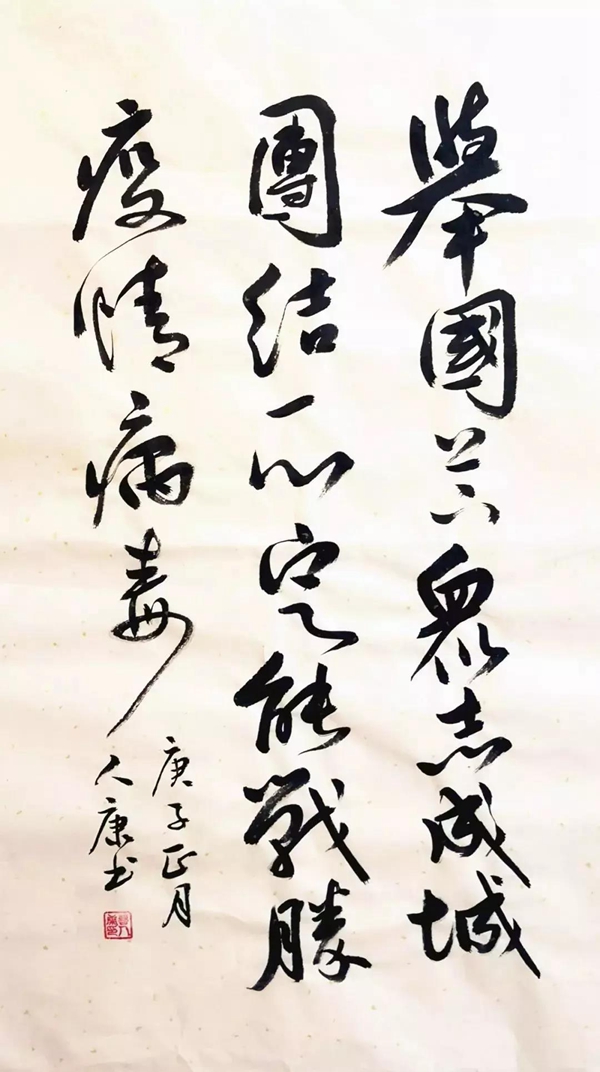 舉國上下眾志成城
團結一心定能戰勝
疫情病毒
庚子正月
人康书